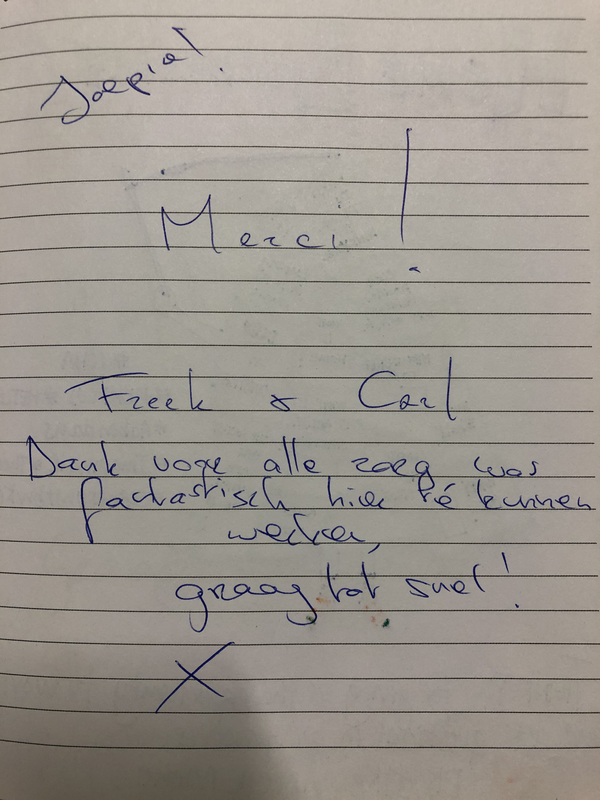 Joepie!
Merci!
Freek & Carl
Dank voor alle zorg was
fantastisch hier té kunnen
werken,
graag tot snel!
X